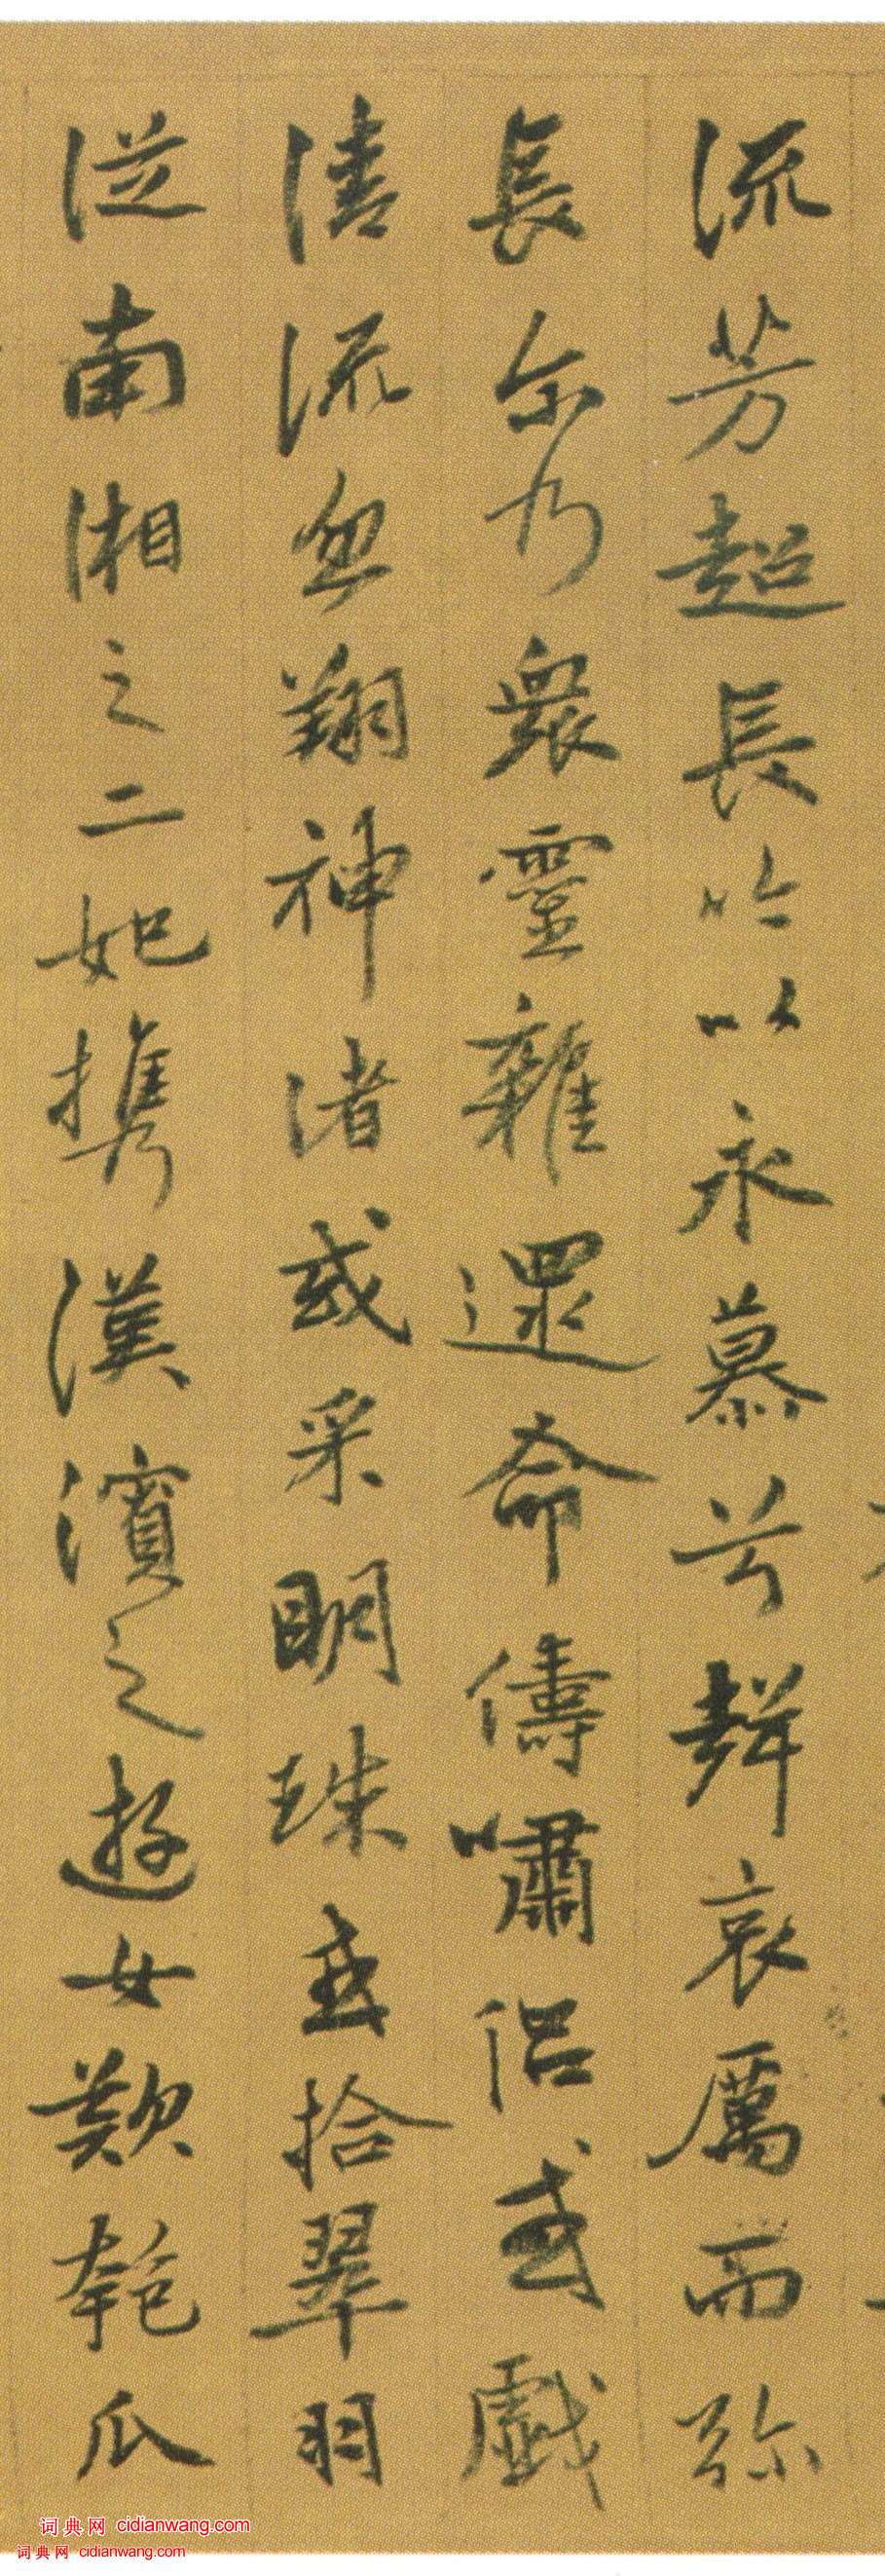 流芳超長吟以永慕兮聲哀厲而弥
長尔乃衆靈雜還命儔嘯侣或戲
清流或翔神渚或采明珠或拾翠羽
從南湘之二妃携漢濱之遊女歎匏瓜
词典网 cidianwang.com
词典网 cidianwang.com